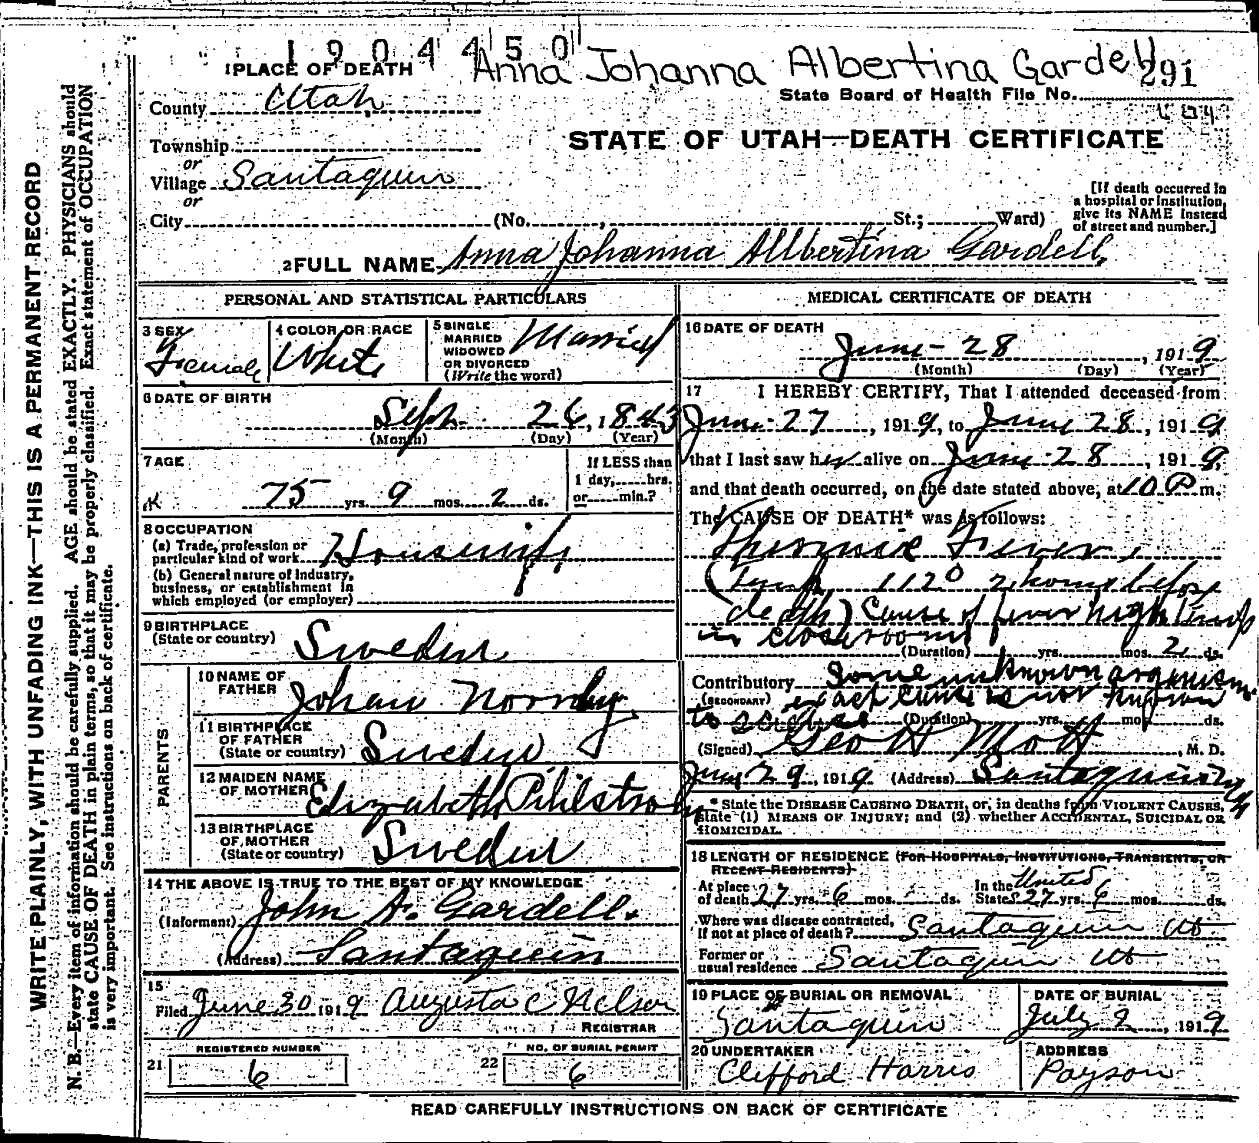 1904450
Anna Johanna Albertina Gardell
1 PLACE OF DEATH
291
State Board of Health File No.
County Utah
STATE OF UTAH—DEATH CERTIFICATE
Township
or
Village Santaquin
or
City (No. , St.; Ward)
[If death occurred in
a hospital or institution,
give its NAME instead
of street and number.]
2 FULL NAME Anna Johanna Allbertina Gardell
PERSONAL AND STATISTICAL PARTICULARS
3 SEX
Female
4 COLOR OR RACE
White
5 SINGLE
MARRIED
WIDOWED
OR DIVORCED
(Write the word)
Married
6 DATE OF BIRTH
Sept. 26, 1843
(Month) (Day) (Year)
7 AGE
75 yrs. 9 mos. 2 ds.
If LESS than
1 day, hrs.
or min.?
8 OCCUPATION
(a) Trade, profession or
particular kind of work Housewife
(b) General nature of Industry,
business, or establishment in
which employed (or employer)
9 BIRTHPLACE
(State or country) Sweden
PARENTS
10 NAME OF
FATHER Johan Noornby
11 BIRTHPLACE
OF FATHER
(State or country) Sweden
12 MAIDEN NAME
OF MOTHER Elizabeth Pihlstrom
13 BIRTHPLACE
OF MOTHER
(State or country) Sweden
14 THE ABOVE IS TRUE TO THE BEST OF MY KNOWLEDGE
(Informant) John A. Gardell.
(Address) Santaquin
15
Filed June 30 1919 Augusta C Nelson
REGISTRAR
REGISTERED NUMBER
21 6
NO. OF BURIAL PERMIT
22 6
MEDICAL CERTIFICATE OF DEATH
16 DATE OF DEATH
June - 28, 1919
(Month) (Day) (Year)
17 I HEREBY CERTIFY, That I attended deceased from
June 27, 1919, to June 28, 1919
that I last saw her alive on June 28, 1919,
and that death occurred, on the date stated above, at 10 P m.
The CAUSE OF DEATH* was as follows:
Thermic Fever,
(Temp 112° 2 hours before
death) Cause of fever high temp
in close room
(Duration) yrs. mos. 2 ds.
Contributory Some unknown organism
(SECONDARY) exact cause is not known
to science (Duration) yrs. mos. ds.
(Signed) Geo H Mott, M. D.
June 29, 1919 (Address) Santaquin Utah
* State the DISEASE CAUSING DEATH, or, in deaths from VIOLENT CAUSES,
state (1) MEANS OF INJURY; and (2) whether ACCIDENTAL, SUICIDAL OR
HOMICIDAL.
18 LENGTH OF RESIDENCE (FOR HOSPITALS, INSTITUTIONS, TRANSIENTS, OR
RECENT RESIDENTS)
At place
of death 27 yrs. 6 mos. ds.
In the United
States 27 yrs. 6 mos. ds.
Where was disease contracted,
If not at place of death? Santaquin Ut
Former or
usual residence Santaquin Ut
19 PLACE OF BURIAL OR REMOVAL
Santaquin
DATE OF BURIAL
July 2, 1919
20 UNDERTAKER
Clifford Harris
ADDRESS
Payson
READ CAREFULLY INSTRUCTIONS ON BACK OF CERTIFICATE
WRITE PLAINLY, WITH UNFADING INK—THIS IS A PERMANENT RECORD
N. B.—Every item of information should be carefully supplied. AGE should be stated EXACTLY. PHYSICIANS should
state CAUSE OF DEATH in plain terms, so that it may be properly classified. Exact statement of OCCUPATION
is very important. See instructions on back of certificate.